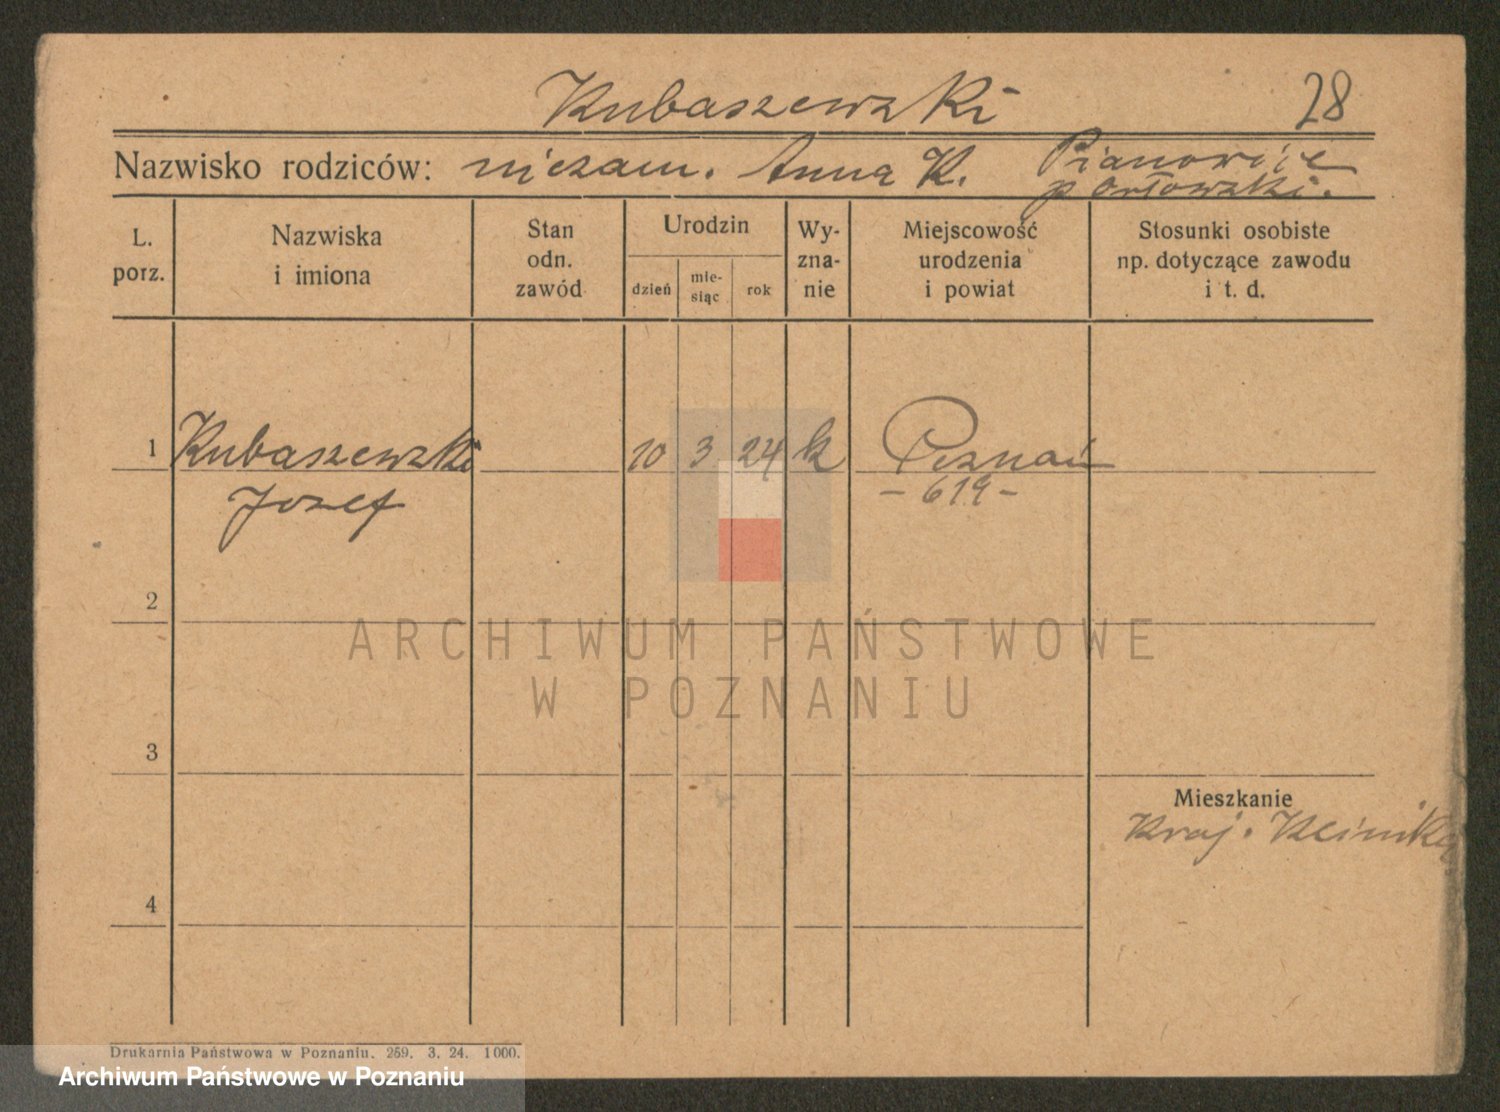 Kubaszewski 28
Nazwisko rodziców: niezam. Anna K. Pianowice
p Orłowski.
L. porz. Nazwiska i imiona Stan odn. zawód Urodzin dzień mie- siąc rok Wy- zna- nie Miejscowość urodzenia i powiat Stosunki osobiste np. dotyczące zawodu i t. d.
1 Kubaszewski 10 3 24 k Poznań
Jozef - 619 -
2
ARCHIWUM PAŃSTWOWE
W POZNANIU
3
Mieszkanie
Kraj. Klinika
4
Drukarnia Państwowa w Poznaniu. 259. 3. 24. 1000.
Archiwum Państwowe w Poznaniu